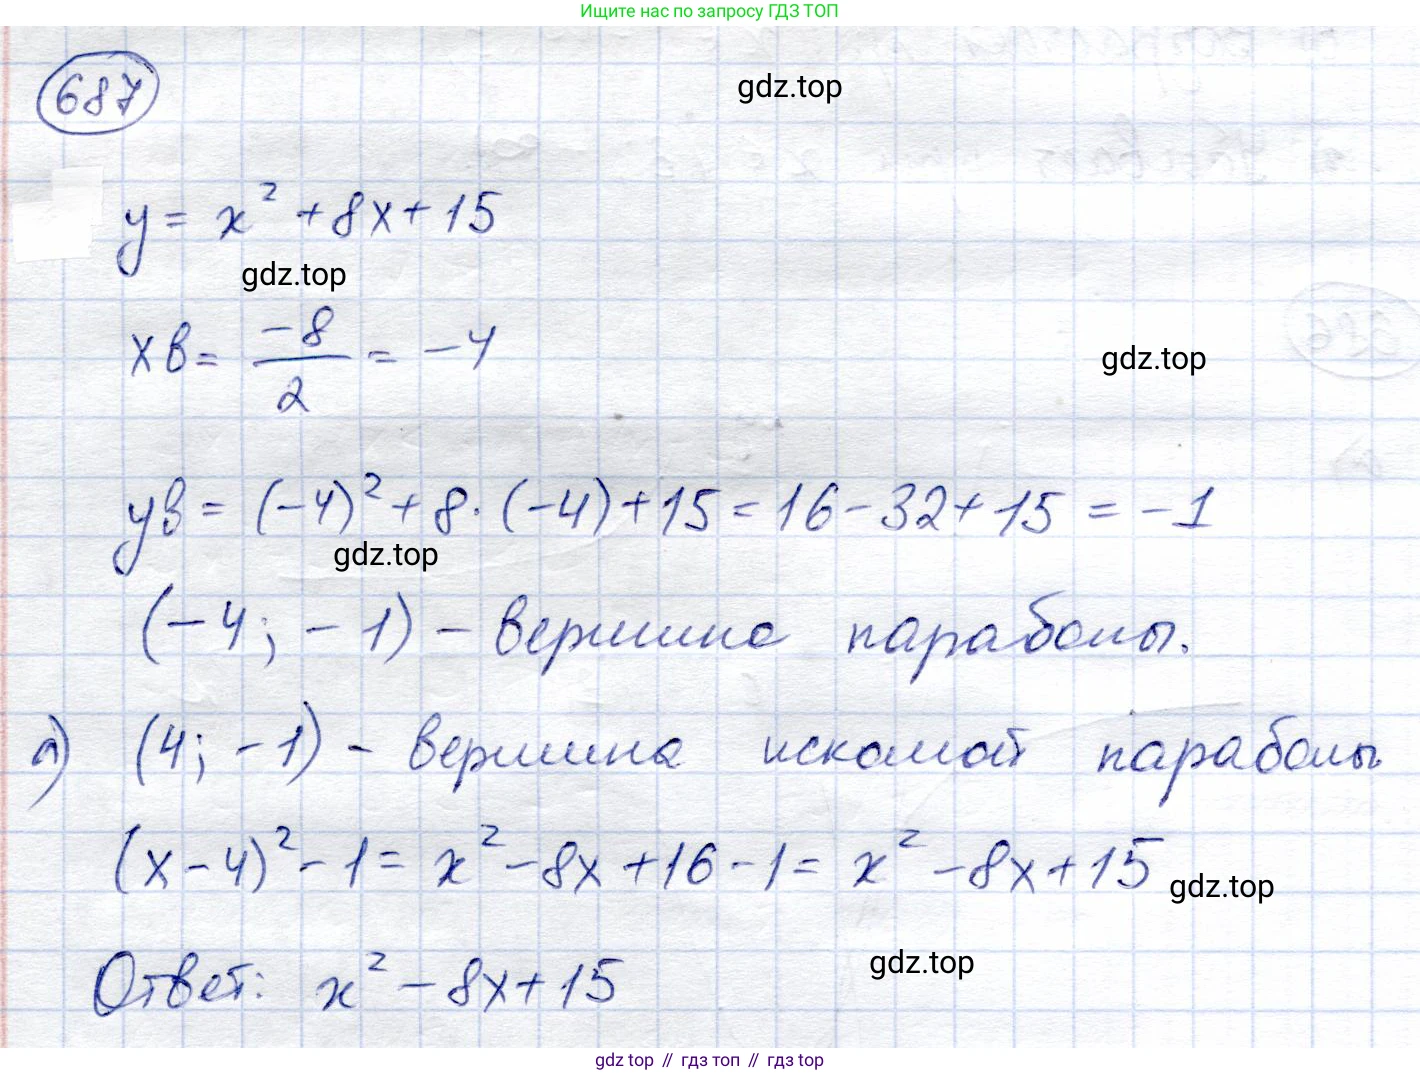 Ищите нас по запросу ГДЗ ТОП
687
gdz.top
y = x² + 8x + 15
gdz.top
xв = -8/2 = -4
gdz.top
yв = (-4)² + 8·(-4) + 15 = 16 - 32 + 15 = -1
gdz.top
(-4; -1) - вершина параболы.
а) (4; -1) - вершина искомой параболы
(x - 4)² - 1 = x² - 8x + 16 - 1 = x² - 8x + 15
gdz.top
gdz.top
Ответ: x² - 8x + 15
gdz top // гдз топ // гдз top